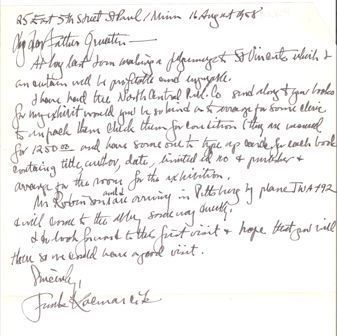 25 East 5th Street St Paul 1 Minn 16 August 1958
My dear Father
At long last I am making a pilgrimage to St Vincents which I
am certain will be profitable and enjoyable.
I have had the North Central Pub. Co send along to you books
for my exhibit would you be so kind as to arrange for some cleric
to unpack them check them for condition (they are insured
for 1250.00 and have some one to type up cards for each book
containing title, author, date, limited ed no & printer &
arrange for the room for the exhibition.
Mr Robinson and I are arriving in Pittsburg by plane TWA 492
& will come to the abbey some way
I look forward to this first visit & hope that you will
there so we could have a good visit.
Sincerely,
Frank Kacmarcik